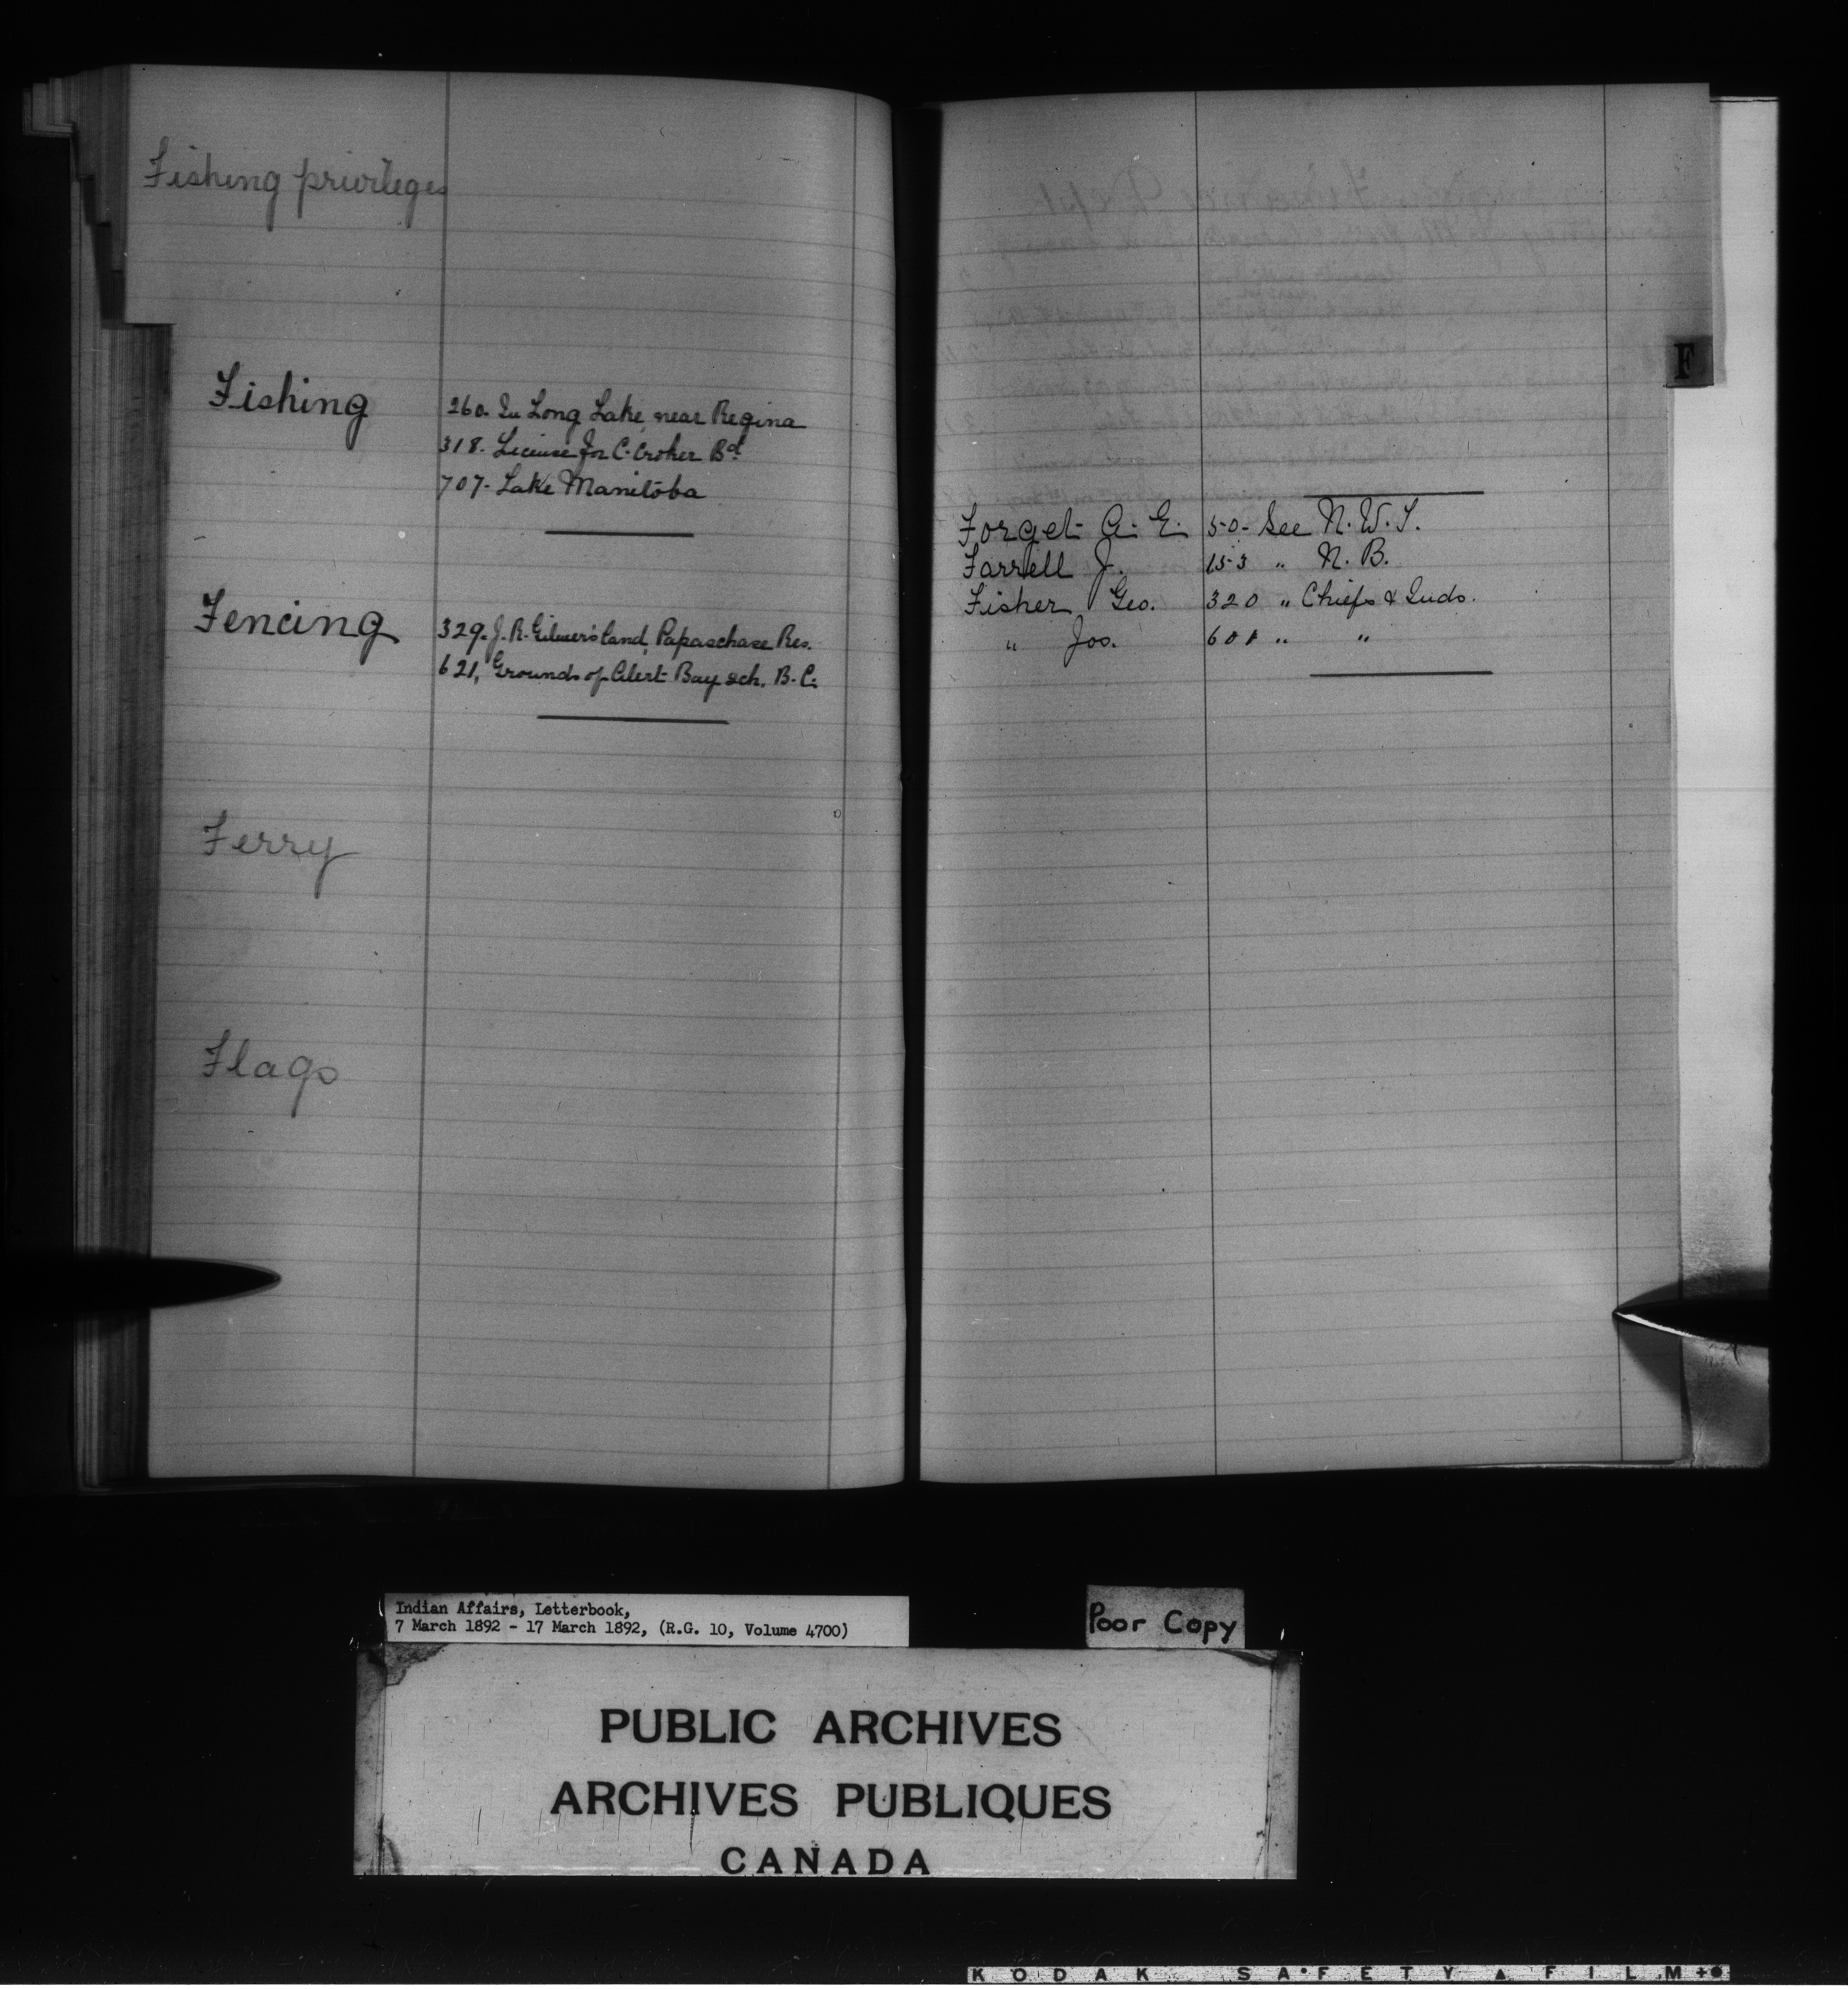 Fishing privileges
Fishing
260. In Long Lake, near Regina
318. License for C. Croker Bd.
707. Lake Manitoba
Fencing
329. J. R. Gilmer's land, Papaschase Res.
621, Grounds of Alert Bay sch. B.C.
Ferry
Flags
F
Forget A. E. 50- See N. W. T.
Farrell J. 153 " N. B.
Fisher Geo. 320 " Chiefs & Inds.
" Jos. 601 " "
Indian Affairs, Letterbook,
7 March 1892 - 17 March 1892, (R.G. 10, Volume 4700)
Poor Copy
PUBLIC ARCHIVES
ARCHIVES PUBLIQUES
CANADA
KODAK SAFETY FILM